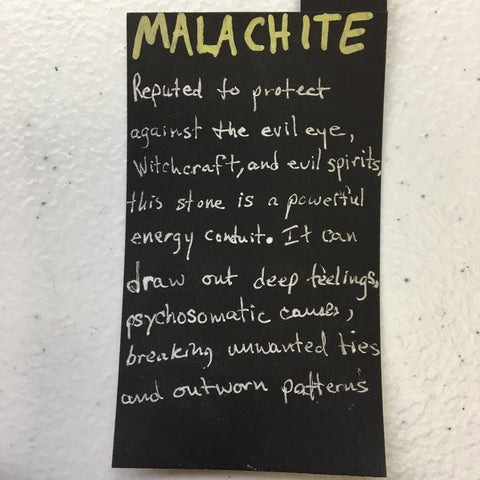 MALACHITE
Reputed to protect
against the evil eye,
Witchcraft, and evil spirits,
this stone is a powerful
energy conduit. It can
draw out deep feelings,
psychosomatic causes,
breaking unwanted ties
and outworn patterns